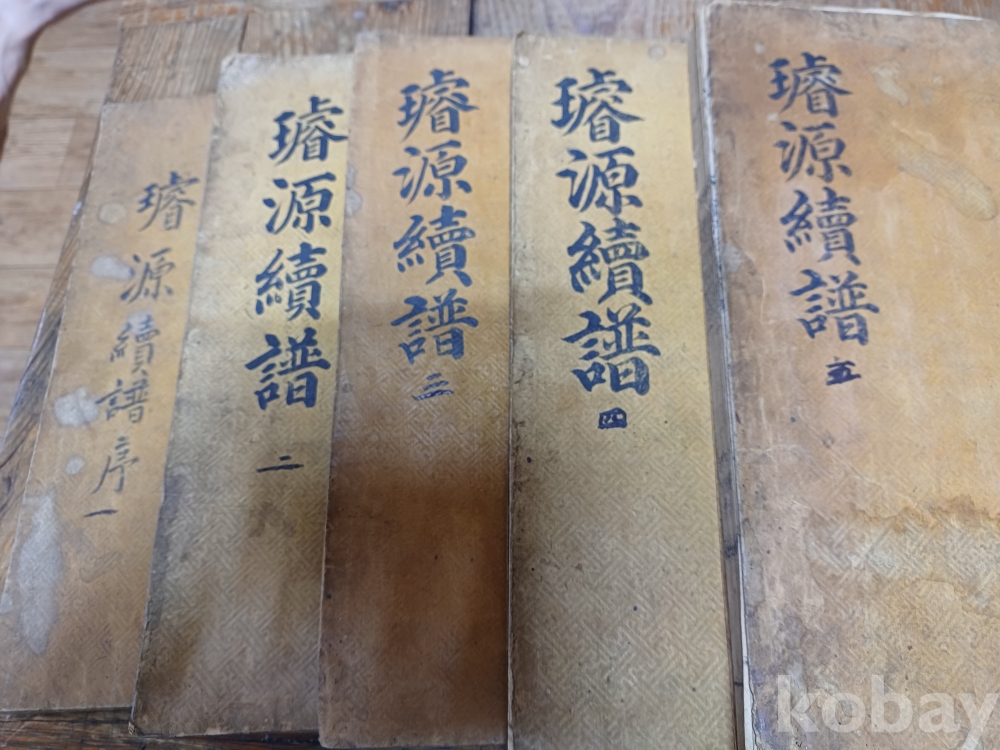 璿源續譜序一
璿源續譜 二
璿源續譜 三
璿源續譜 四
璿源續譜 五
kobay